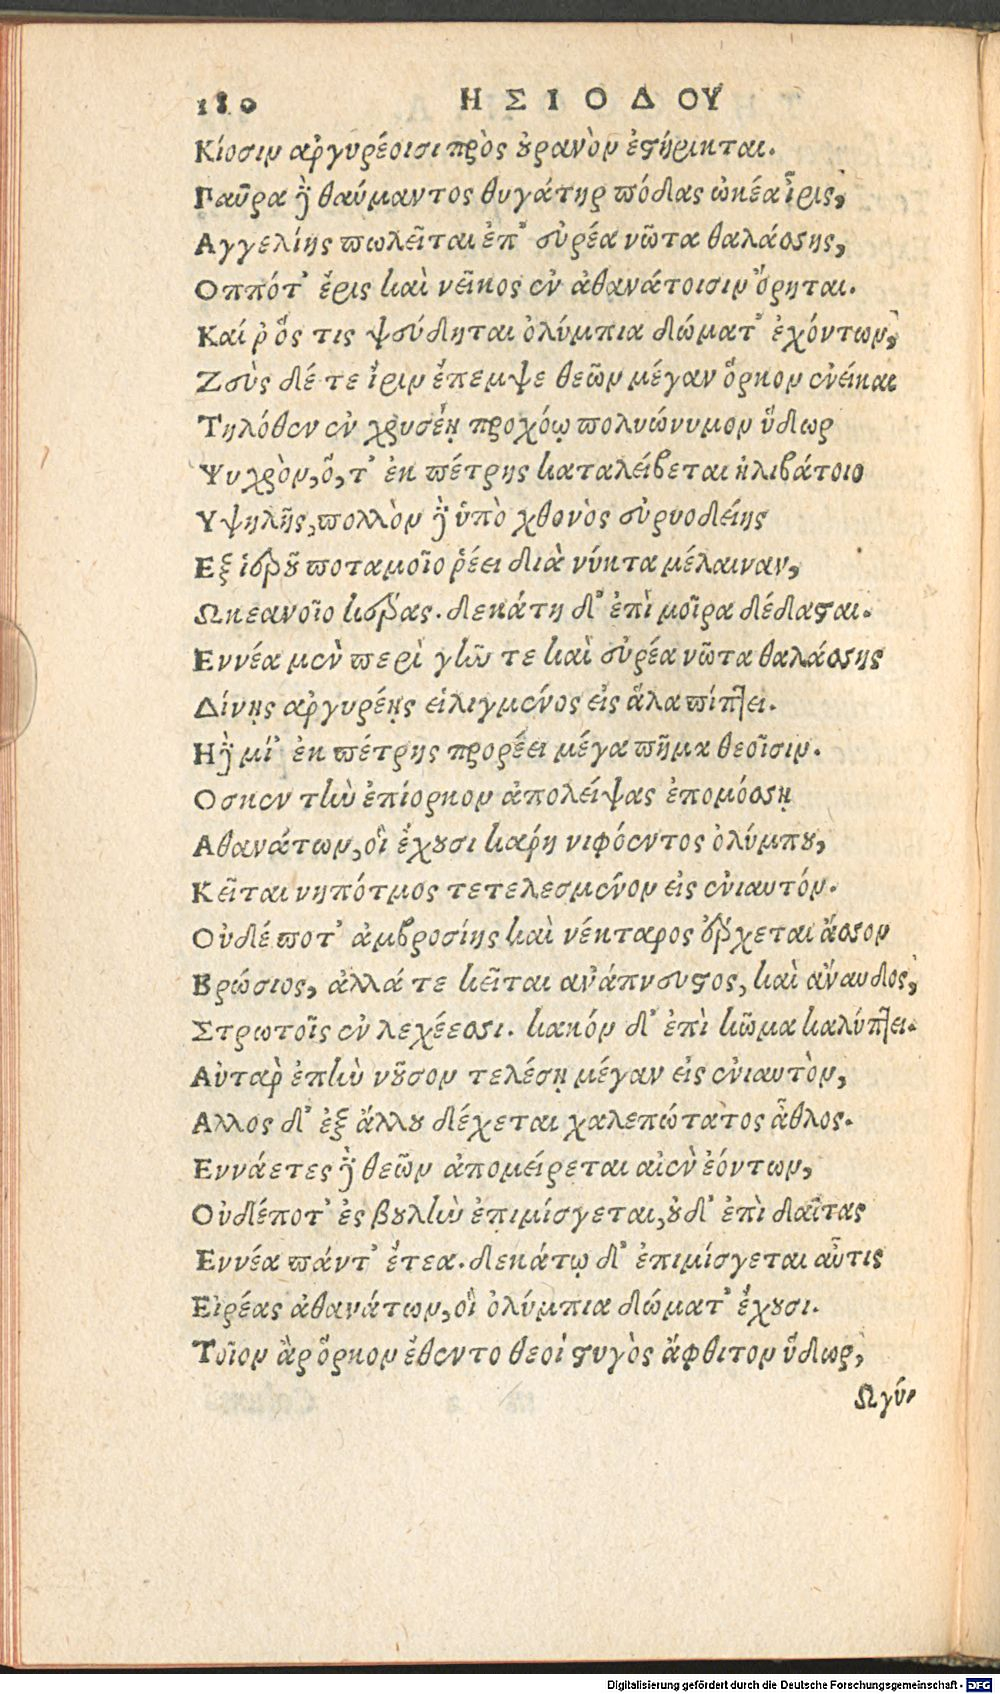 180 ΗΣΙΟΔΟΥ
Κίοσιν ἀργυρέοισι πρὸς οὐρανὸν ἐστήρικται.
Γαῦρα δὲ θαύμαντος θυγάτηρ πόδας ὠκέα ἶρις,
Αγγελίης πωλεῖται ἐπ' εὐρέα νῶτα θαλάσσης,
Οππότ' ἔρις καὶ νεῖκος ἐν ἀθανάτοισιν ὄρηται.
Καί ῥ' ὅς τις ψεύδηται ὀλύμπια δώματ' ἐχόντων,
Ζεὺς δέ τε ἶριν ἔπεμψε θεῶν μέγαν ὅρκον ἐνεῖκαι
Τηλόθεν ἐν χρυσέῃ προχόῳ πολυώνυμον ὕδωρ
Ψυχρὸν, ὅ, τ' ἐκ πέτρης καταλείβεται ἠλιβάτοιο
Υψηλῆς, πολλὸν δὲ ὑπὸ χθονὸς εὐρυοδείης
Εξ ἱεροῦ ποταμοῖο ῥέει διὰ νύκτα μέλαιναν,
Ωκεανοῖο κέρας. δεκάτη δ' ἐπὶ μοῖρα δέδασται.
Εννέα μὲν περὶ γῆν τε καὶ εὐρέα νῶτα θαλάσσης
Δίνῃς ἀργυρέῃς εἱλιγμένος εἰς ἅλα πίπτει.
Η δὲ μί' ἐκ πέτρης προρέει μέγα πῆμα θεοῖσιν.
Οσκεν τὴν ἐπίορκον ἀπολείψας ἐπομόσσῃ
Αθανάτων, οἳ ἔχουσι κάρη νιφόεντος ὀλύμπου,
Κεῖται νηπότμος τετελεσμένον εἰς ἐνιαυτόν.
Οὐδέ ποτ' ἀμβροσίης καὶ νέκταρος ἔρχεται ἄσσον
Βρώσιος, ἀλλά τε κεῖται ἀνάπνευστος, καὶ ἄναυδος,
Στρωτοῖς ἐν λεχέεσσι. κακόν δ' ἐπὶ κῶμα καλύπτει.
Αὐτὰρ ἐπὴν νοῦσον τελέσῃ μέγαν εἰς ἐνιαυτὸν,
Αλλος δ' ἐξ ἄλλου δέχεται χαλεπώτατος ἆθλος.
Εννάετες δὲ θεῶν ἀπομείρεται αἰὲν ἐόντων,
Οὐδέποτ' ἐς βουλὴν ἐπιμίσγεται, οὐδ' ἐπὶ δαῖτας
Εννέα πάντ' ἔτεα. δεκάτῳ δ' ἐπιμίσγεται αὖτις
Εἰρέας ἀθανάτων, οἳ ὀλύμπια δώματ' ἔχουσι.
Τοῖον ἂρ ὅρκον ἔθεντο θεοὶ στυγὸς ἄφθιτον ὕδωρ,
Ωγύ-
Digitalisierung gefördert durch die Deutsche Forschungsgemeinschaft - DFG